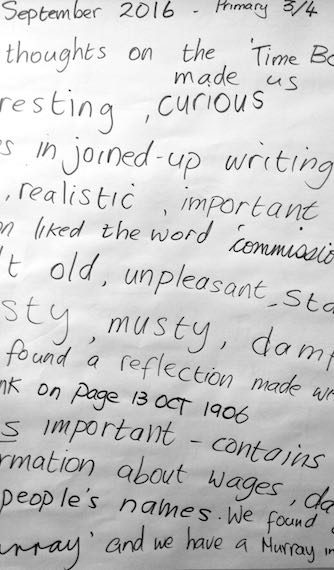 September 2016 - Primary 3/4
thoughts on the 'Time Bo
made us
resting, curious
s in joined-up writing
, realistic, important
n liked the word 'commissio
t old, unpleasant, sta
sty, musty, damp
found a reflection made w
nk on page 13 OCT 1906
s important - contains
rmation about wages, da
people's names. We found
urray' and we have a Murray in